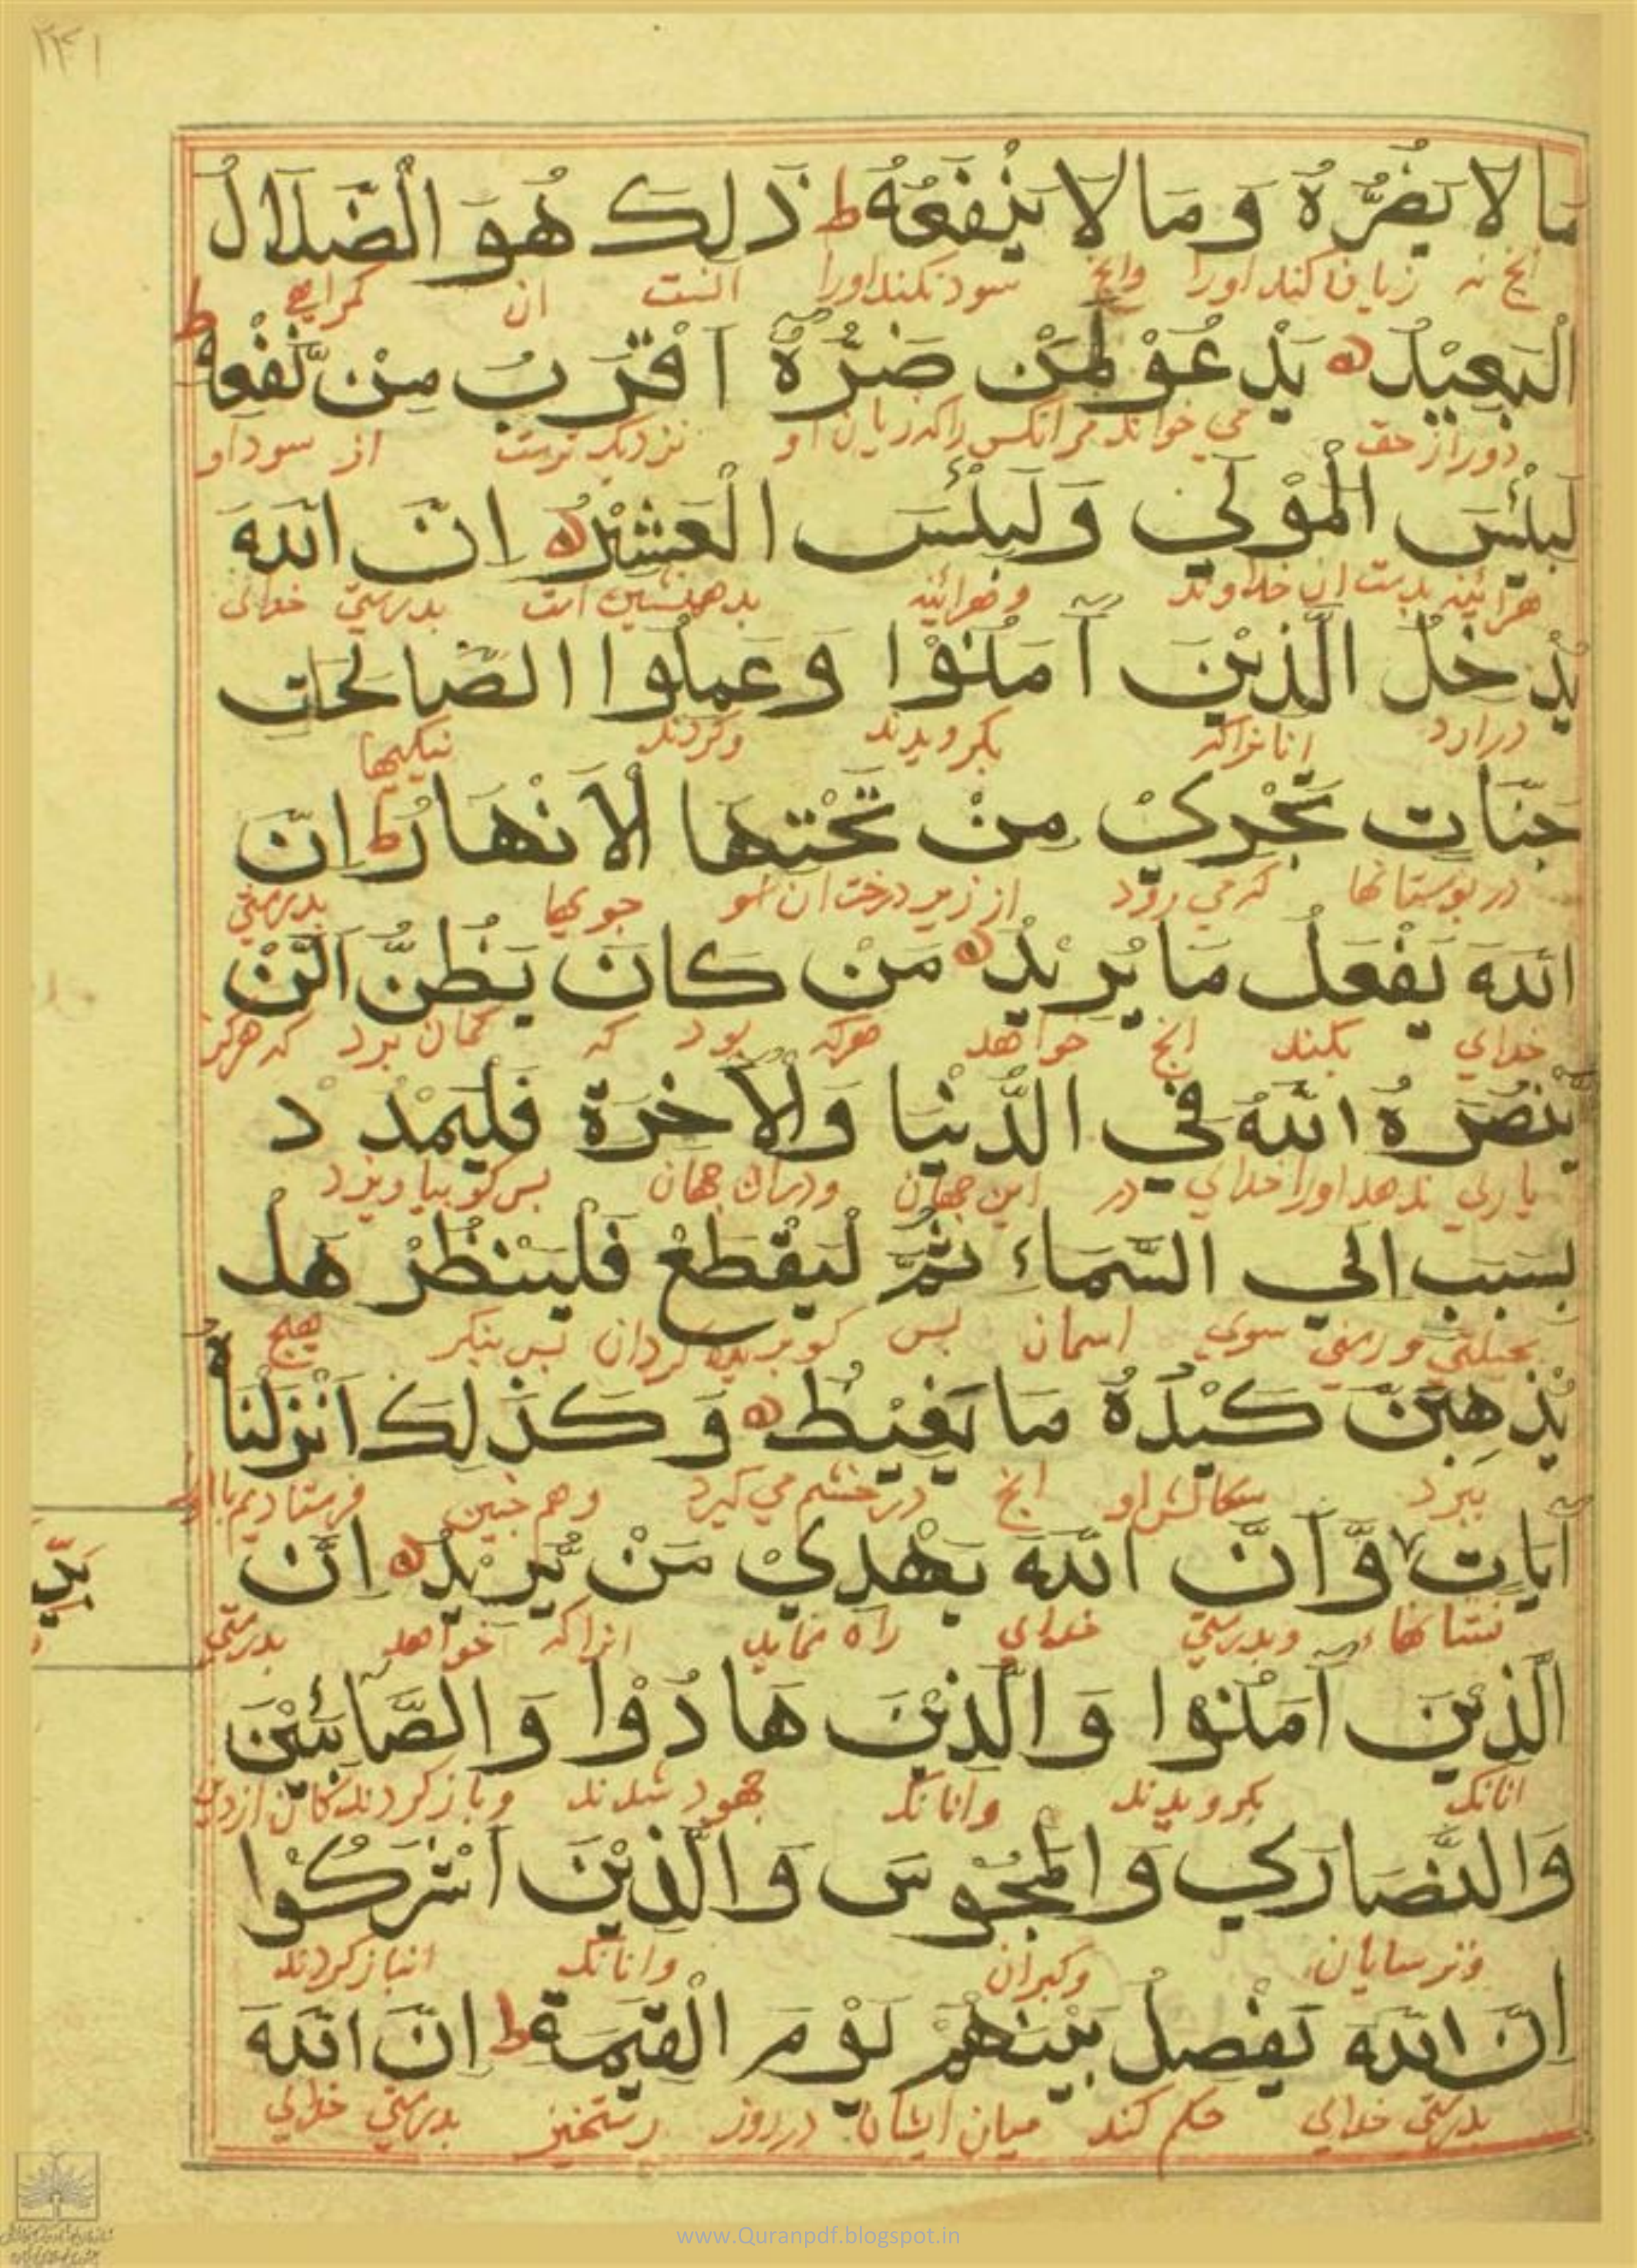 ۲۴۱
مَا لَا يَضُرُّهُ وَمَا لَا يَنْفَعُهُ ط ذَٰلِكَ هُوَ الضَّلَالُ
انچ نه زیان کند اورا وانچ سود نکند اورا آنست ان کمراهی
الْبَعِيْدُ يَدْعُوْ لَمَنْ ضَرُّهُ اَقْرَبُ مِنْ نَّفْعِهٖ ط
دور از حق می خواند مر انکس را که زیان او نزدیک ترست از سود او
لَبِئْسَ الْمَوْلٰي وَلَبِئْسَ الْعَشِيْرُ اِنَّ اللّٰهَ
هرآئینه بدست ان خداوند وهرائینه بدهمنشین است بدرستی خدای
يُدْخِلُ الَّذِيْنَ آمَنُوْا وَعَمِلُوا الصَّالِحَاتِ
درارد انانراکه بکرویدند وکردند نیکیها
جَنَّاتٍ تَجْرِيْ مِنْ تَحْتِهَا الْاَنْهَارُ ط اِنَّ
در بوستانها که می رود از زیر درختان او جویها بدرستی
اللّٰهَ يَفْعَلُ مَا يُرِيْدُ مَنْ كَانَ يَظُنُّ اَنْ لَّنْ
خدای بکند انچ خواهد هرکه بود که کمان برد که هرکز
يَنْصُرَهُ اللّٰهُ فِي الدُّنْيَا وَالْاٰخِرَةِ فَلْيَمْدُدْ
یاری ندهد اورا خدای در این جهان ودران جهان بس کو بیاویزد
بِسَبَبٍ اِلَي السَّمَاءِ ثُمَّ لْيَقْطَعْ فَلْيَنْظُرْ هَلْ
سوی اسمان بس کو بریده کردان بس بنکر هیچ
يُذْهِبَنَّ كَيْدُهُ مَا يَغِيْظُ وَكَذٰلِكَ اَنْزَلْنَاهُ
ببرد سکالش او انچ در خشم می کیرد وهم چنین فرستادیم ما او
آيَاتٍ وَّاَنَّ اللّٰهَ يَهْدِيْ مَنْ يُّرِيْدُ اِنَّ
نشانها وبدرستی خدای راه نماید انرا که خواهد بدرستی
الَّذِيْنَ آمَنُوْا وَالَّذِيْنَ هَادُوْا وَالصَّابِئِيْنَ
انانک بکرویدند وانانک جهود شدند وباز کردندکان از دین
وَالنَّصَارٰي وَالْمَجُوْسَ وَالَّذِيْنَ اَشْرَكُوْا
وترسایان وکبران وانانک انباز کردند
اِنَّ اللّٰهَ يَفْصِلُ بَيْنَهُمْ يَوْمَ الْقِيٰمَةِ ط اِنَّ اللّٰهَ
بدرستی خدای حکم کند میان ایشان در روز رستخیز بدرستی خدای
www.Quranpdf.blogspot.in